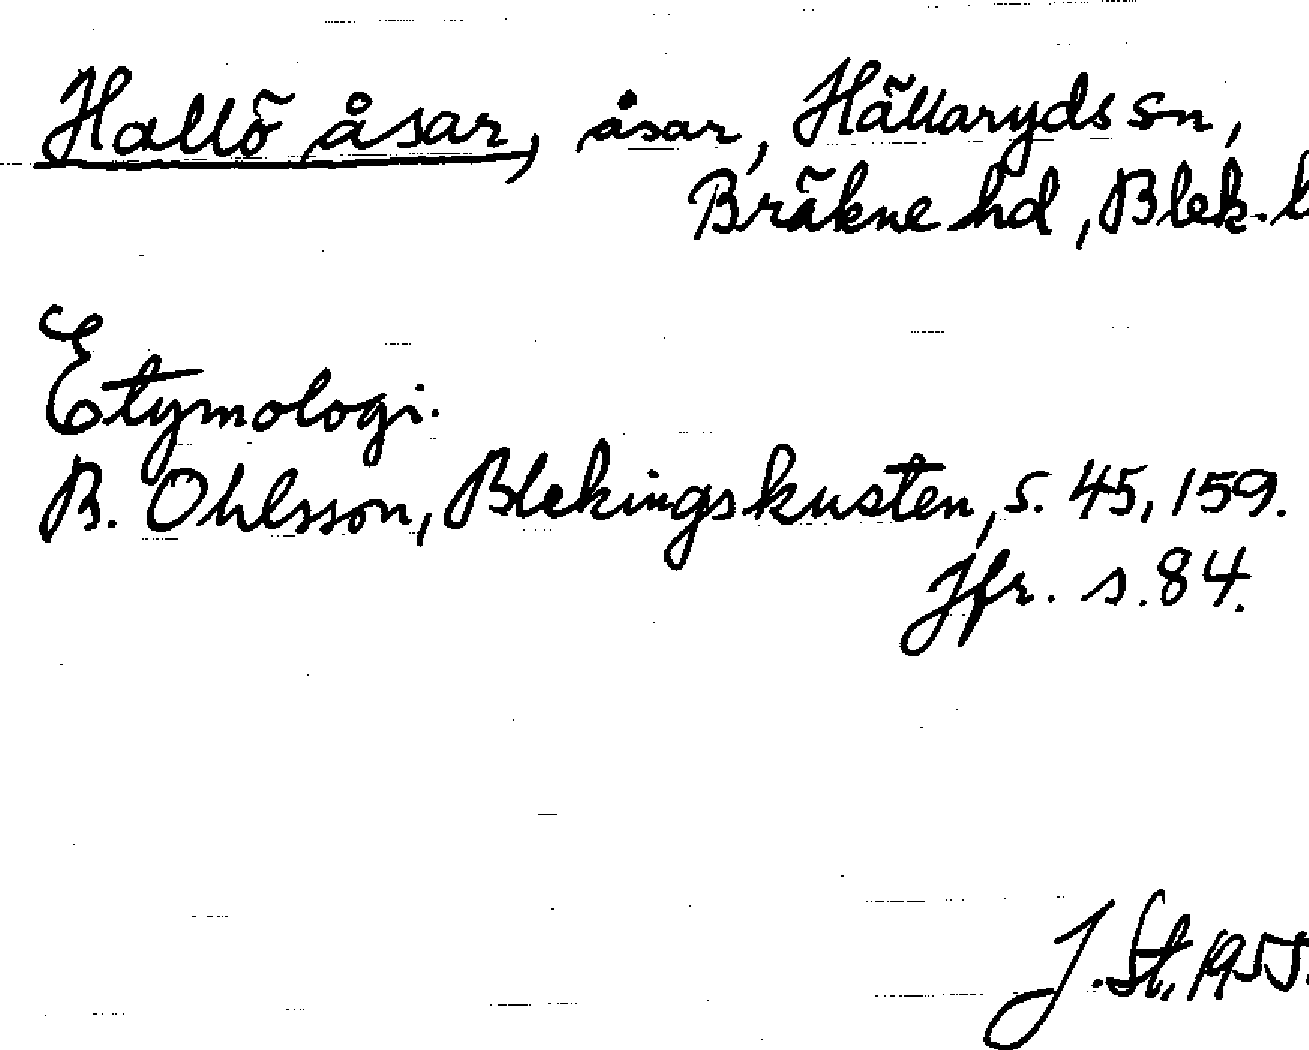 Hallö åsar, åsar, Hällaryds sn,
Bräkne hd, Blek. l
Etymologi.
B. Ohlsson, Blekingskusten, s. 45, 159.
Jfr. s. 84.
J. St. 1955.